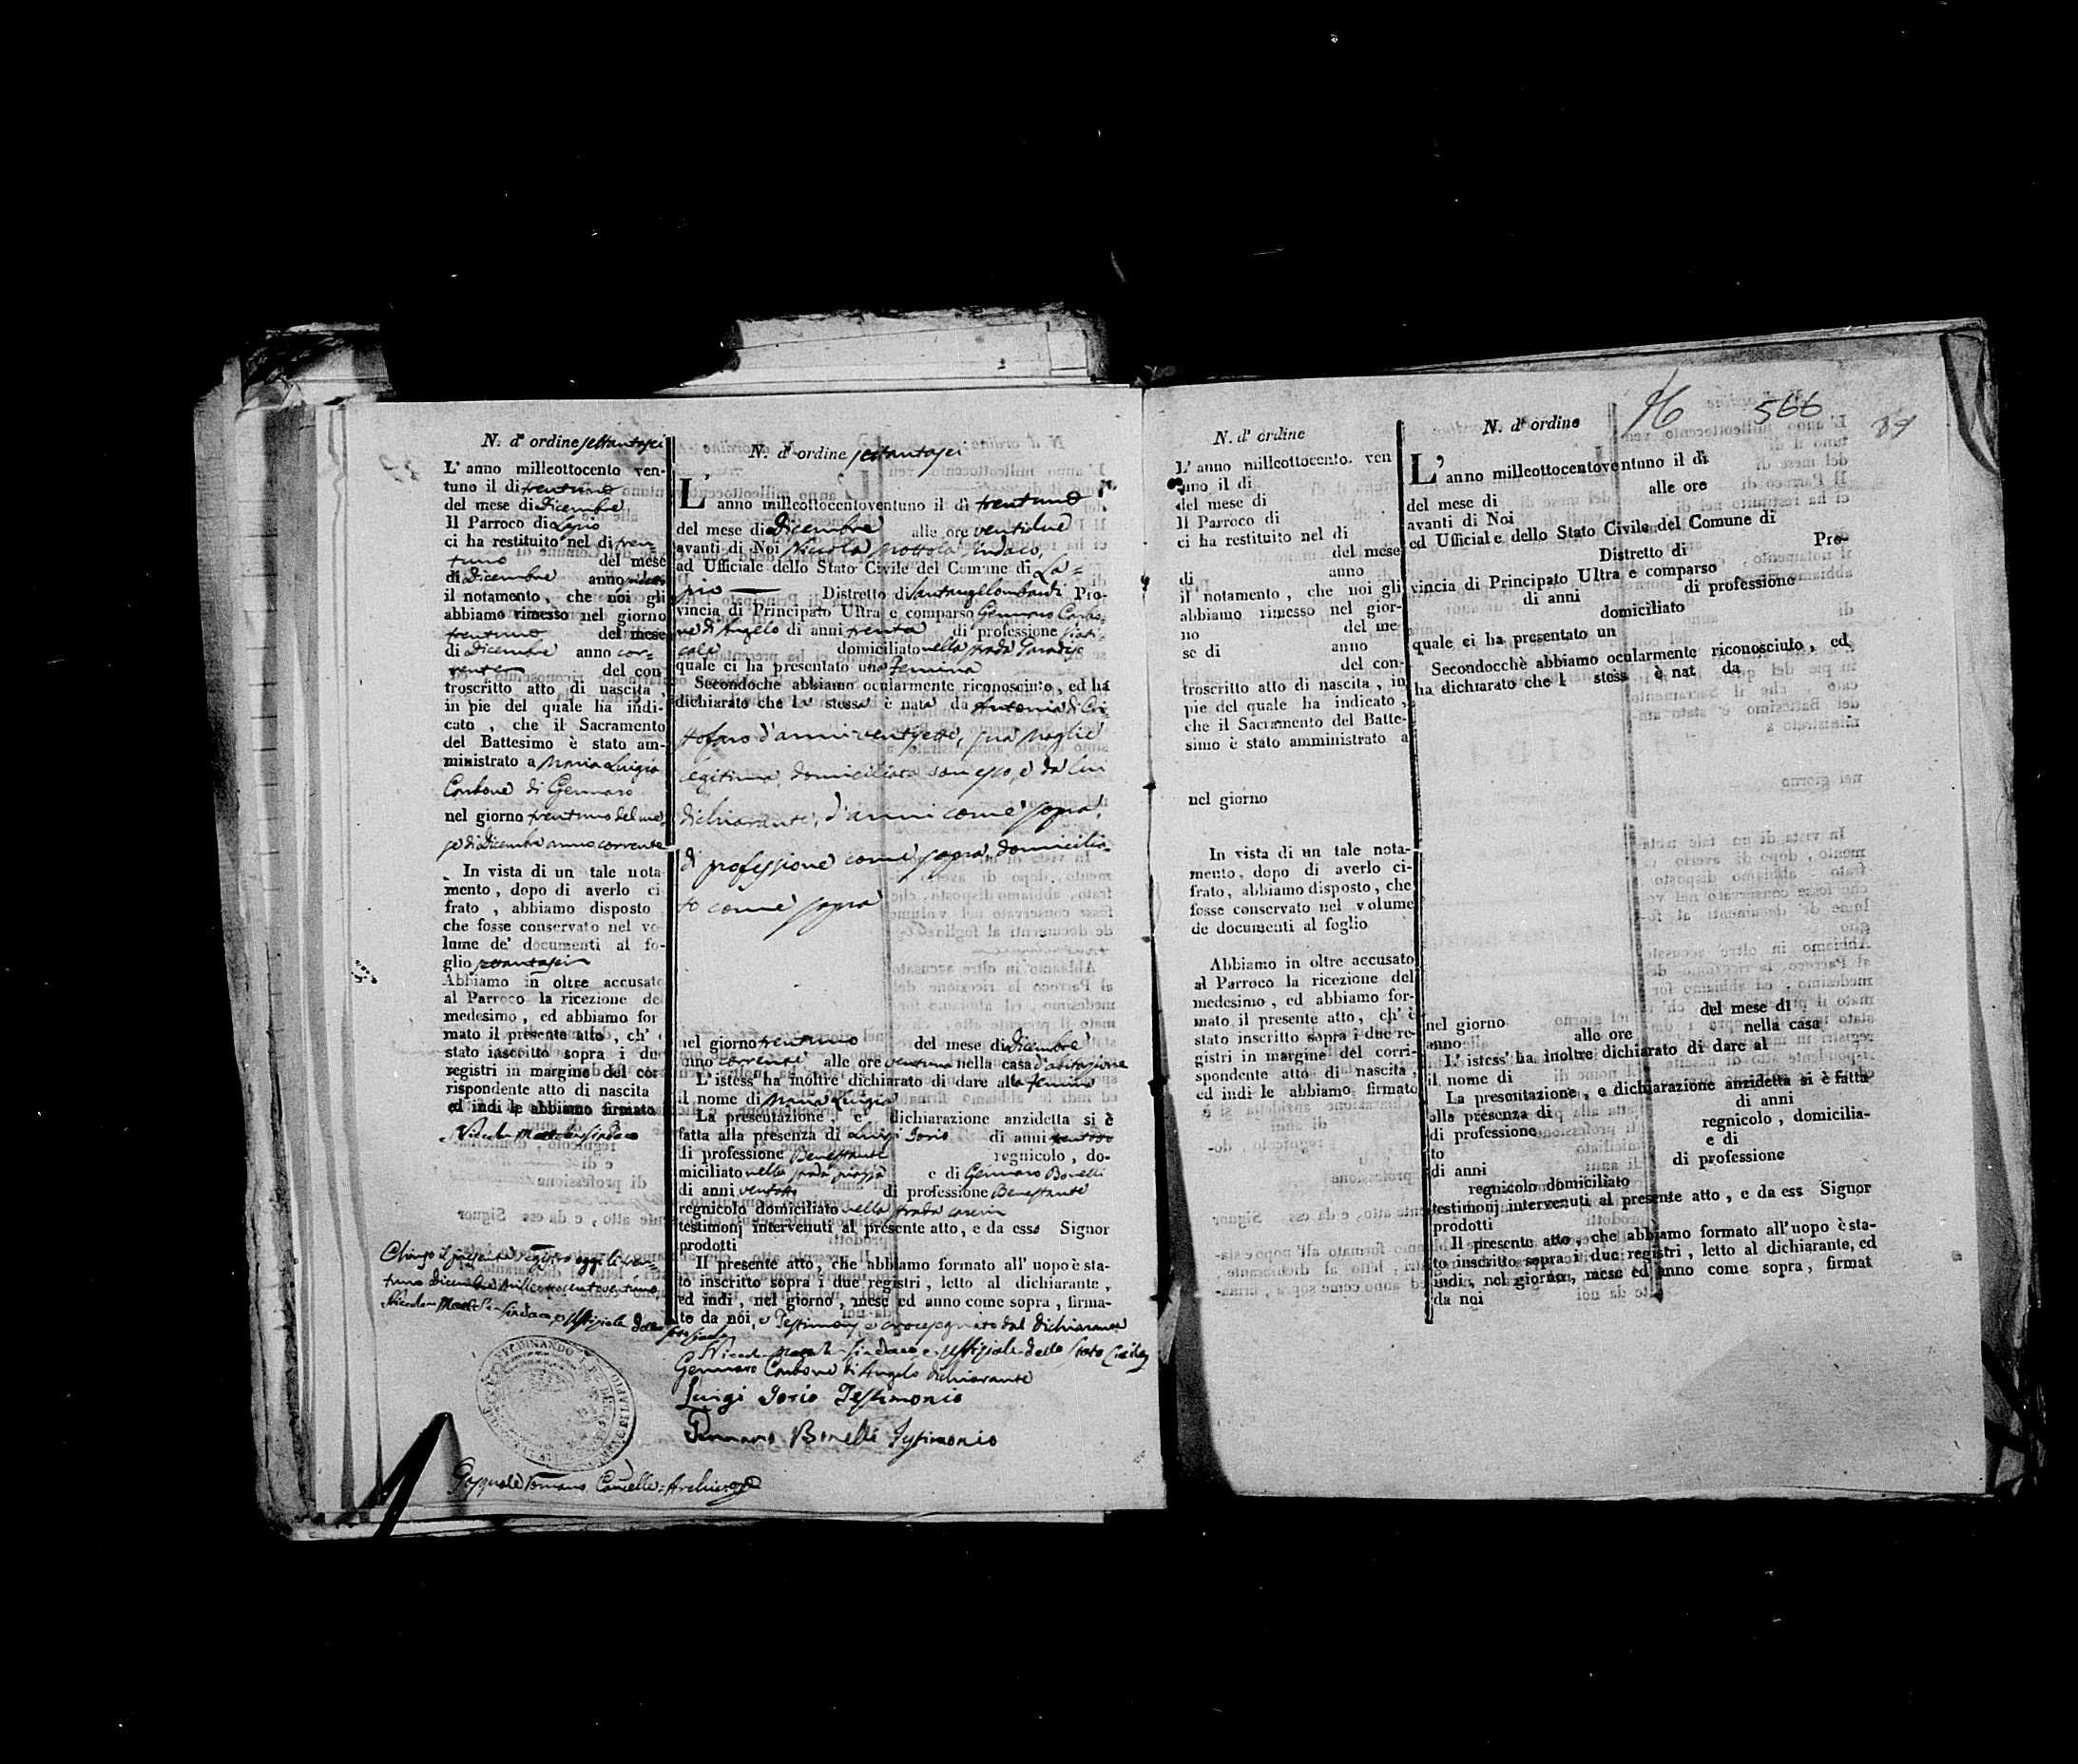 N. d' ordine settantasei
L' anno milleottocento ven-
tuno il dì trentuno
del mese di Dicembre
Il Parroco di Lapio
ci ha restituito nel dì tren-
tuno del mese
di Dicembre anno
il notamento, che noi gli
abbiamo rimesso nel giorno
trentuno del mese
di Dicembre anno cor-
rente del con
troscritto atto di nascita,
in pie del quale ha indi-
cato, che il Sacramento
del Battesimo è stato am-
ministrato a Maria Luigia
Carbone di Gennaro
nel giorno trentuno del me-
se di Dicembre anno corrente
In vista di un tale nota
mento, dopo di averlo ci
frato, abbiamo disposto
che fosse conservato nel vo
lume de' documenti al fo-
glio settantasei
Abbiamo in oltre accusato
al Parroco la ricezione de
medesimo, ed abbiamo for
mato il presente atto, ch'
stato inscritto sopra i due
registri in margine del cor
rispondente atto di nascita
ed indi le abbiamo firmato
Nicola Mottola Sindaco
Chiuso il presente registro oggi li tren-
tuno Dicembre milleottocentoventuno
Nicola Mottola Sindaco, e Uffiziale dello
Stato Civile
FERDINANDO I.
Pasquale Romano Cancelle: Archiv:
N. d' ordine settantasei
L' anno milleottocentoventuno il dì trentuno
del mese di Dicembre alle ore ventidue
avanti di Noi Nicola Mottola Sindaco,
ad Ufficiale dello Stato Civile del Comune di La-
pio Distretto di Santangelolombardi Pro-
vincia di Principato Ultra e comparso Gennaro Carbo-
ne di Angelo di anni trenta di professione
domiciliato nella strada Paradiso
quale ci ha presentato una Femina
Secondochè abbiamo ocularmente riconosciuto, ed ha
dichiarato che la stessa è nata da Antonia di Cri-
stofaro d'anni ventisette, sua moglie
legitima domiciliata con esso, e da lui
dichiarante, d'anni come sopra,
di professione come sopra, domicilia-
to come sopra
nel giorno trentuno del mese di Dicembre
anno corrente alle ore ventuna nella casa d'abitazione
L' istess' ha inoltre dichiarato di dare alla Femina
il nome di Maria Luigia
La presentazione, e dichiarazione anzidetta si è
fatta alla presenza di Luigi Iorio di anni
di professione Benestante regnicolo, do-
miciliato nella strada piazza e di Gennaro Bonelli
di anni ventotto di professione Benestante
regnicolo domiciliato nella strada
testimonj intervenuti al presente atto, e da esso Signor
prodotti
Il presente atto, che abbiamo formato all' uopo è sta-
to inscritto sopra i due registri, letto al dichiarante,
ed indi, nel giorno, mese ed anno come sopra, firma-
to da noi, e Testimonj e crocesegnato dal dichiarante
Nicola Mottola Sindaco, e Uffiziale dello Stato Civile
Gennaro Carbone di Angelo dichiarante
Luigi Iorio Testimonio
Gennaro Bonelli Testimonio
76 566 84
N. d' ordine
L' anno milleottocento. ven
tuno il dì
del mese di
Il Parroco di
ci ha restituito nel dì
del mese
di anno
il notamento, che noi gli
abbiamo rimesso nel gior-
no del me-
se di anno
del con-
troscritto atto di nascita, in
pie del quale ha indicato,
che il Sacramento del Batte-
simo è stato amministrato a
nel giorno
In vista di un tale nota-
mento, dopo di averlo ci-
frato, abbiamo disposto, che
fosse conservato nel volume
de documenti al foglio
Abbiamo in oltre accusato
al Parroco la ricezione del
medesimo, ed abbiamo for-
mato il presente atto, ch' è
stato inscritto sopra i due re-
gistri in margine del corri-
spondente atto di nascita,
ed indi le abbiamo firmato
N. d' ordine
L' anno milleottocentoventuno il dì
del mese di alle ore
avanti di Noi
ed Ufficiale dello Stato Civile del Comune di
Distretto di Pro-
vincia di Principato Ultra e comparso
di anni di professione
domiciliato
quale ci ha presentato un
Secondocchè abbiamo ocularmente riconosciuto, ed
ha dichiarato che l stess è nat da
nel giorno del mese di
anno alle ore nella casa
L' istess' ha inoltre dichiarato di dare al
il nome di
La presentazione, e dichiarazione anzidetta si è fatta
alla presenza di di anni
di professione regnicolo, domicilia-
to e di
di anni di professione
regnicolo domiciliato
testimonj intervenuti al presente atto, e da ess Signor
prodotti
Il presente atto, che abbiamo formato all' uopo è sta-
to inscritto sopra i due registri, letto al dichiarante, ed
indi, nel giorno, mese ed anno come sopra, firmat
da noi